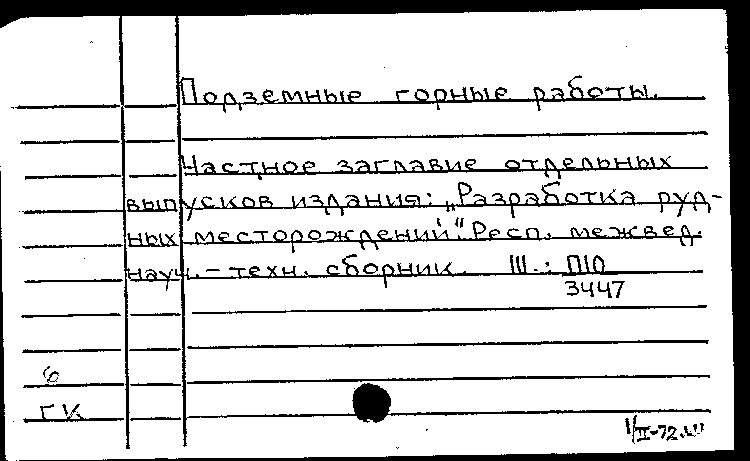 Подземные горные работы.
Частное заглавие отдельных
выпусков издания: „Разработка руд-
ных месторождений". Респ. межвед.
науч.-техн. сборник. Ш.: П10
3447
6
ГК
1/II-72